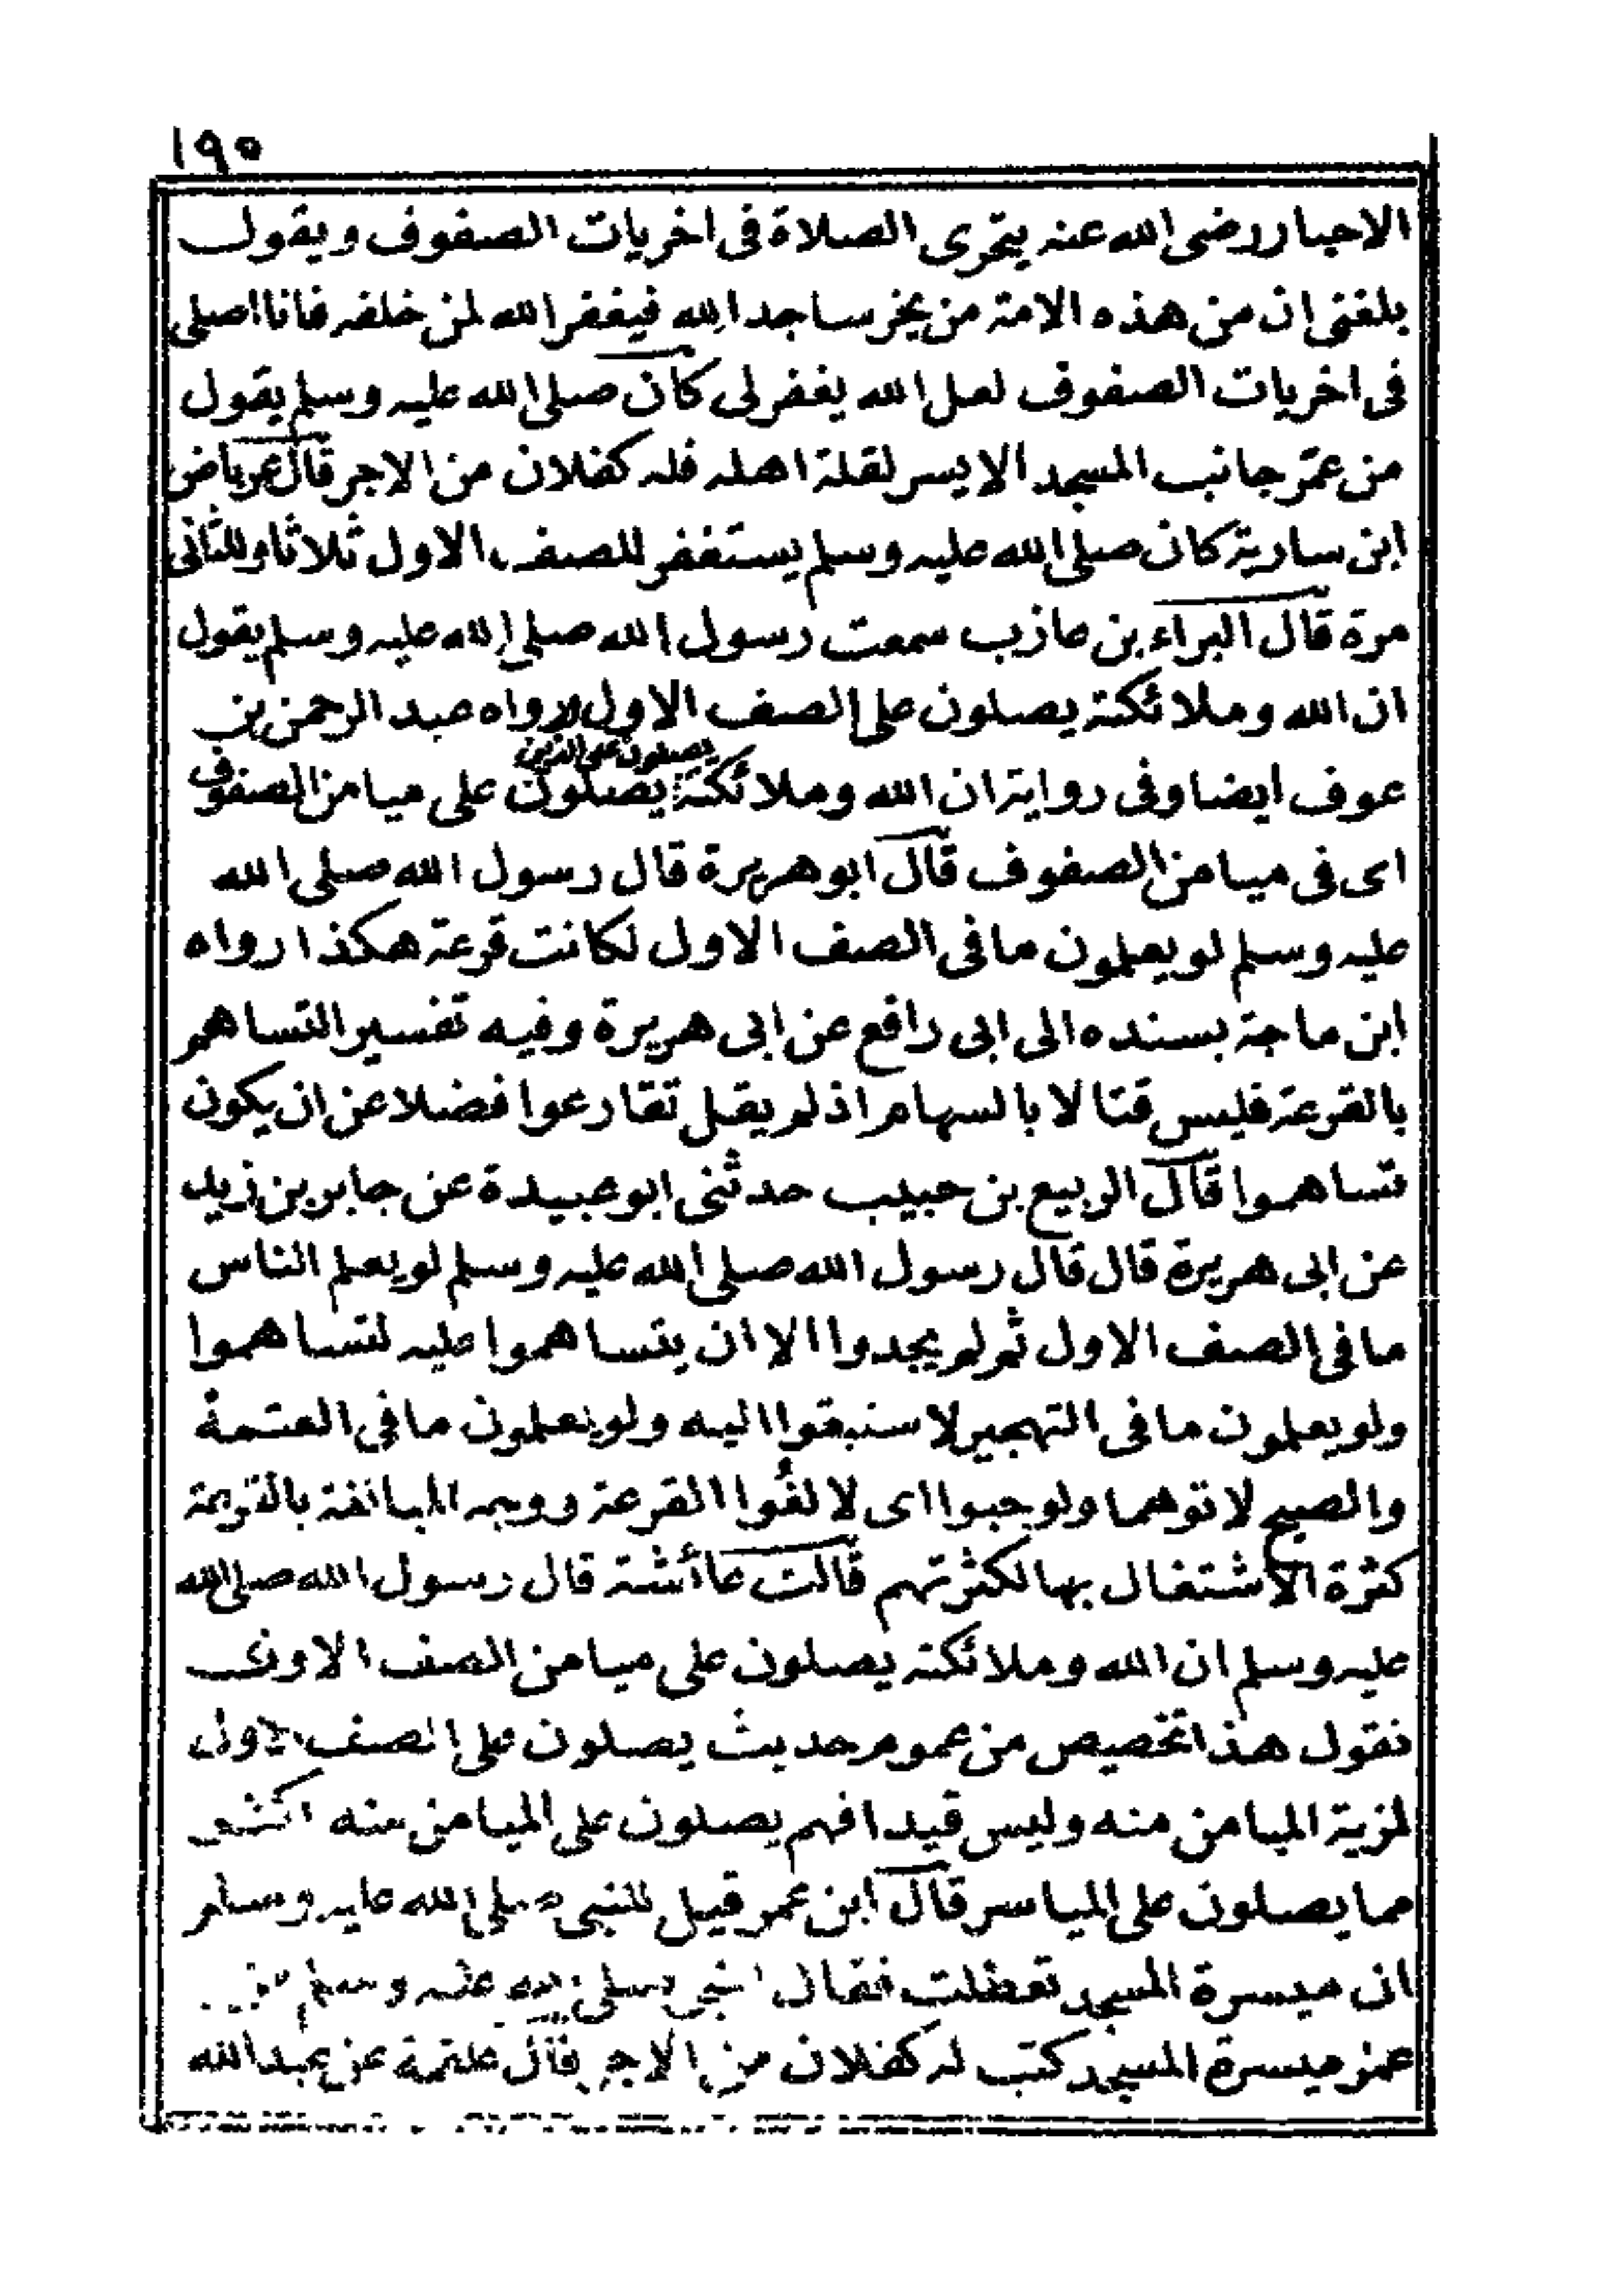 ١٩٥
الاحبار رضى الله عنه يتحرى الصلاة فى اخريات الصفوف ويقول
بلغنى ان من هذه الامة من يخر ساجدا لله فيغفر الله لمن خلفه فانا اصلى
فى اخريات الصفوف لعل الله يغفر لى كان صلى الله عليه وسلم يقول
من عمّر جانب المسجد الايسر لقلة اهله فله كفلان من الاجر قال عرباض
ابن سارية كان صلى الله عليه وسلم يستغفر للصف الاول ثلاثا وللثانى
مرة قال البراء بن عازب سمعت رسول الله صلى الله عليه وسلم يقول
ان الله وملائكته يصلون على الصف الاول ورواه عبد الرحمن بن
يصلون على الذين
عوف ايضا وفى رواية ان الله وملائكته يصلون على ميامن الصفوف
اى فى ميامن الصفوف قال ابو هريرة قال رسول الله صلى الله
عليه وسلم لو يعلمون ما فى الصف الاول لكانت قرعة هكذا رواه
ابن ماجة بسنده الى ابى رافع عن ابى هريرة وفيه تفسير التساهم
بالقرعة فليس قتالا بالسهام اذ لم يقل تقارعوا فضلا عن ان يكون
تساهموا قال الربيع بن حبيب حدثنى ابو عبيدة عن جابر بن زيد
عن ابى هريرة قال قال رسول الله صلى الله عليه وسلم لو يعلم الناس
ما فى الصف الاول ثم لم يجدوا الا ان يتساهموا عليه لتساهموا
ولو يعلمون ما فى التهجير لاستبقوا اليه ولو يعلمون ما فى العتمة
والصبح لاتوهما ولو حبوا اى لالفُوا القرعة ووجه المبالغة بالقرعة
كثرة الاشتغال بها لكثرتهم قالت عائشة قال رسول الله صلى الله
عليه وسلم ان الله وملائكته يصلون على ميامن الصف الاول
نقول هذا تخصيص من عموم حديث يصلون على الصف الاول
لمزية الميامن منه وليس قيدا فهم يصلون على الميامن منه اكثر
مما يصلون على المياسر قال ابن عمر قيل للنبى صلى الله عليه وسلم
ان ميسرة المسجد تعطلت فقال النبى صلى الله عليه وسلم من
عمر ميسرة المسجد كتب له كفلان من الاجر قال علقمة عن عبد الله